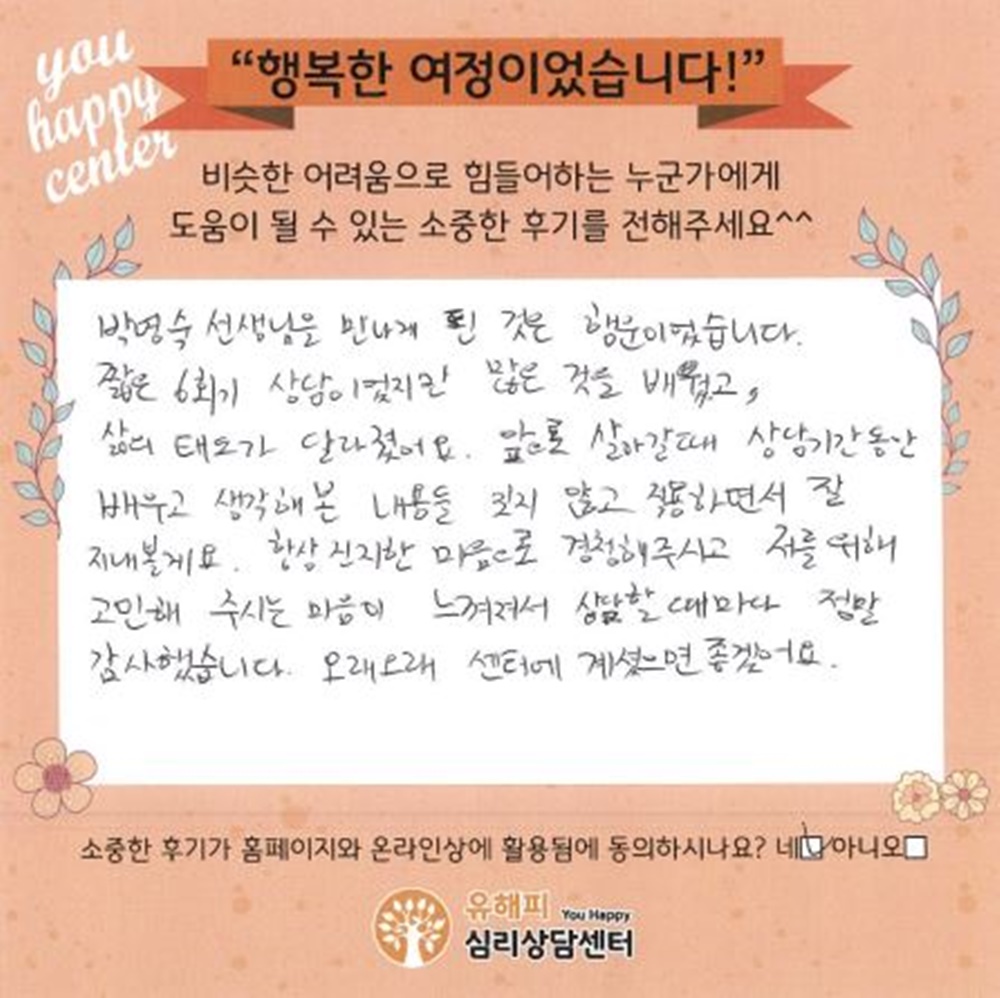 you
happy
center
“행복한 여정이었습니다!”
비슷한 어려움으로 힘들어하는 누군가에게
도움이 될 수 있는 소중한 후기를 전해주세요^^
박영숙 선생님을 만나게 된 것은 행운이었습니다.
짧은 6회기 상담이었지만 많은 것을 배웠고,
삶의 태도가 달라졌어요. 앞으로 살아갈때 상담기간동안
배우고 생각해본 내용들 잊지 않고 적용하면서 잘
지내볼게요. 항상 진지한 마음으로 경청해주시고 저를 위해
고민해 주시는 마음이 느껴져서 상담할 때마다 정말
감사했습니다. 오래오래 센터에 계셨으면 좋겠어요.
소중한 후기가 홈페이지와 온라인상에 활용됨에 동의하시나요? 네☑아니오☐
유해피 You Happy
심리상담센터